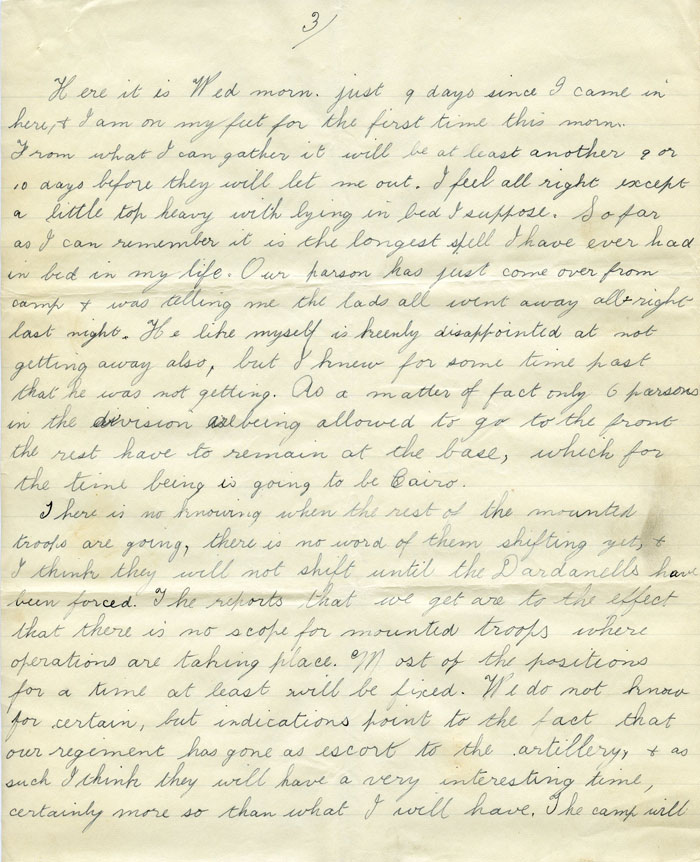 3/
Here it is Wed morn. just 9 days since I came in
here, & I am on my feet for the first time this morn.
From what I can gather it will be at least another 9 or
10 days before they will let me out. I feel all right except
a little top heavy with lying in bed I suppose. So far
as I can remember it is the longest spell I have ever had
in bed in my life. Our parson has just come over from
camp & was telling me the lads all went away all right
last night. He like myself is keenly disappointed at not
getting away also, but I knew for some time past
that he was not getting. As a matter of fact only 6 parsons
in the division are being allowed to go to the front
the rest have to remain at the base, which for
the time being is going to be Cairo.
There is no knowing when the rest of the mounted
troops are going, there is no word of them shifting yet, &
I think they will not shift until the Dardanells have
been forced. The reports that we get are to the effect
that there is no scope for mounted troops where
operations are taking place. Most of the positions
for a time at least will be fixed. We do not know
for certain, but indications point to the fact that
our regiment has gone as escort to the artillery, & as
such I think they will have a very interesting time,
certainly more so than what I will have. The camp will